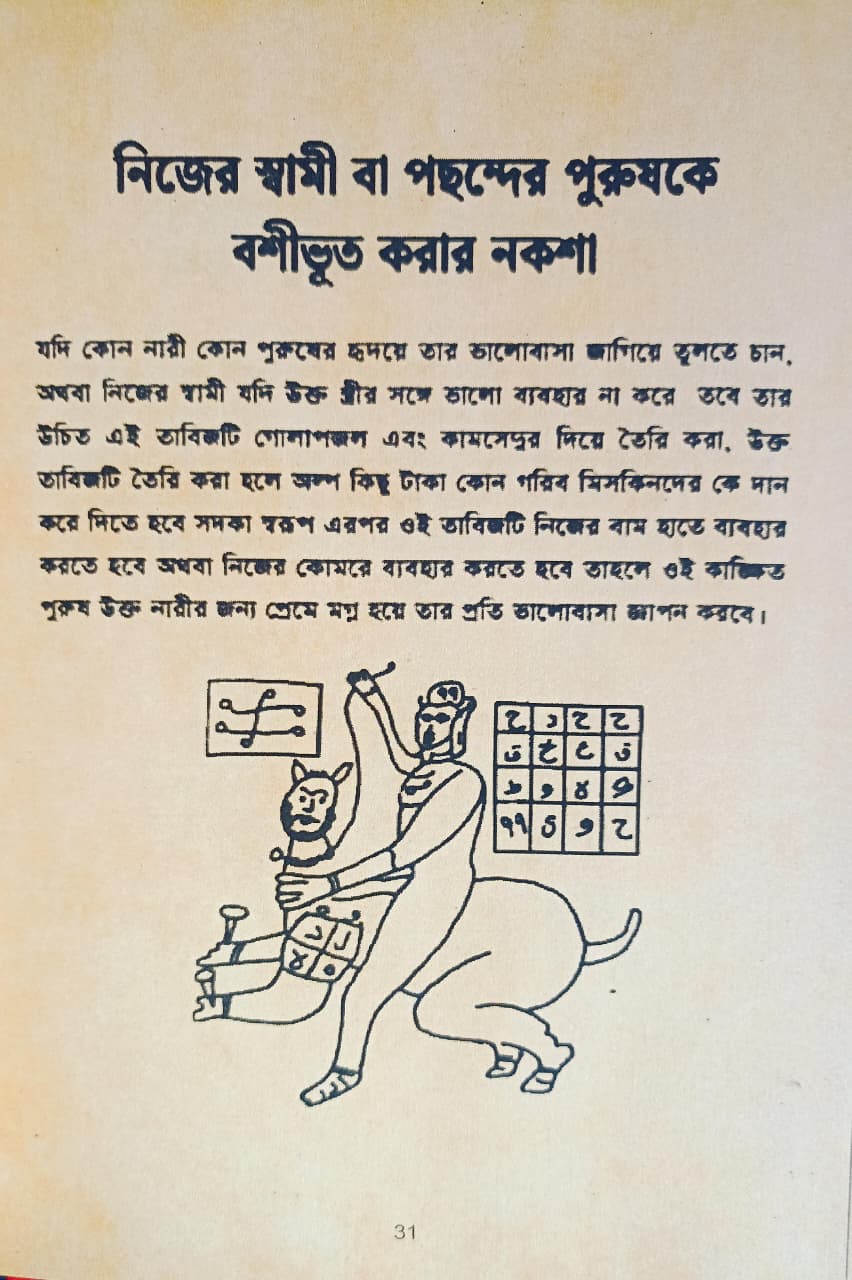 নিজের স্বামী বা পছন্দের পুরুষকে
বশীভূত করার নকশা
যদি কোন নারী কোন পুরুষের হৃদয়ে তার ভালোবাসা জাগিয়ে তুলতে চান,
অথবা নিজের স্বামী যদি উক্ত স্ত্রীর সঙ্গে ভালো ব্যবহার না করে তবে তার
উচিত এই তাবিজটি গোলাপজল এবং জাফরান দিয়ে তৈরি করা, উক্ত
তাবিজটি তৈরি করা হলে অল্প কিছু টাকা কোন গরিব মিসকিনদের কে দান
করে দিতে হবে সদকা স্বরূপ এরপর ওই তাবিজটি নিজের বাম হাতে ব্যবহার
করতে হবে অথবা নিজের কোমরে ব্যবহার করতে হবে তাহলে ওই কাঙ্ক্ষিত
পুরুষ উক্ত নারীর জন্য প্রেমে মগ্ন হয়ে তার প্রতি ভালোবাসা জ্ঞাপন করবে।
31